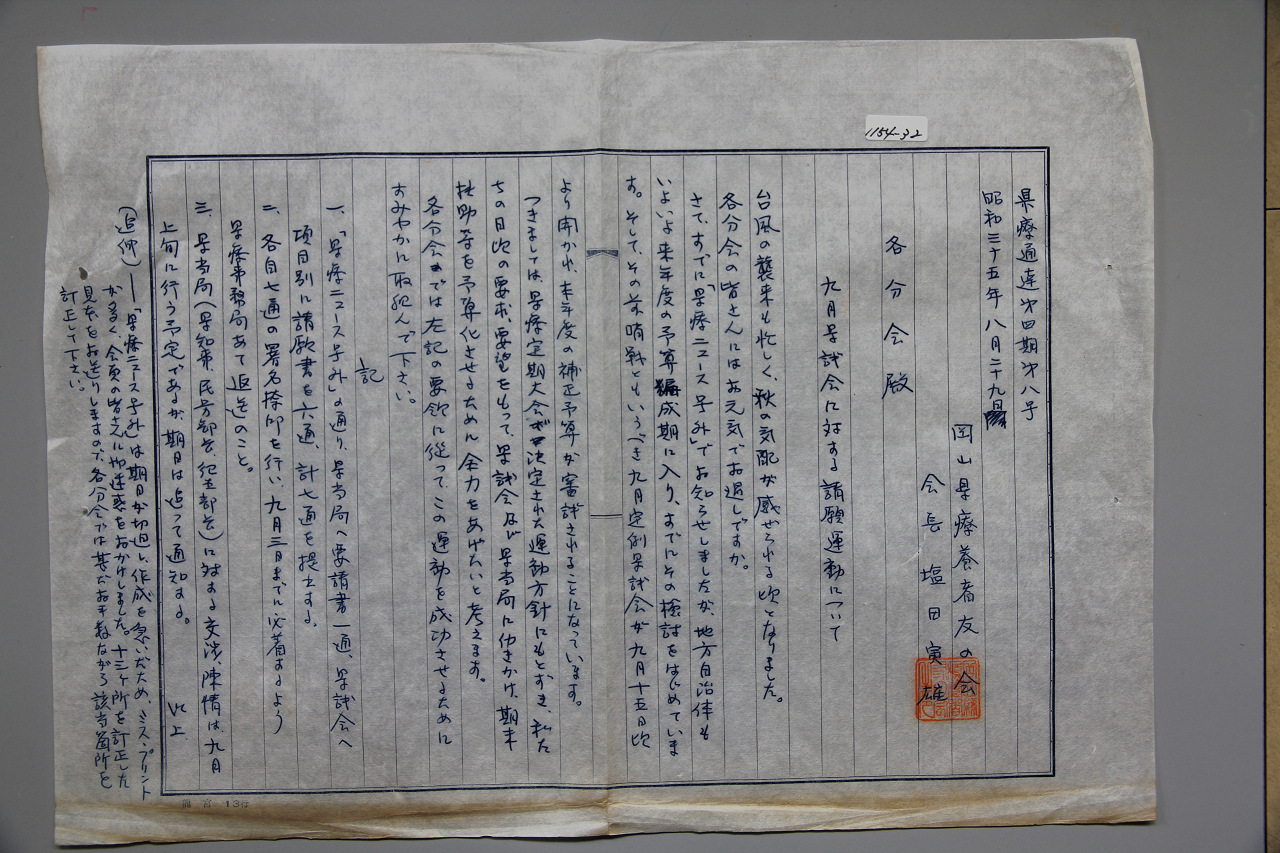 1154-32
県療通達第四期第八号
昭和三十五年八月二十九日
岡山県療養者友の会
会長 塩田実雄
各分会殿
九月県議会に対する請願運動について
台風の襲来も忙しく、秋の気配が感ぜられる頃となりました。
各分会の皆さんにはお元気でお過しですか。
さて、すでに「県療ニュース号外」でお知らせしましたが、地方自治体も
いよいよ来年度の予算編成期に入り、すでにその検討をはじめていま
す。そして、その前哨戦ともいうべき九月定例県議会が九月十五日頃
より開かれ、本年度の補正予算が審議されることになっています。
つきましては、県療定期大会で決定された運動方針にもとずき、私た
ちの日頃の要求、要望をもって、県議会及び県当局に働きかけ、期末
扶助等を予算化させるために全力をあげたいと考えます。
各分会では左記の要領に従って、この運動を成功させるために
すみやかに取組んで下さい。
記
一、「県療ニュース号外」の通り、県当局へ要請書一通、県議会へ
項目別に請願書を六通、計七通を提出する。
二、各自七通の署名捺印を行い、九月三日までに必着するよう
県療事務局あて返送のこと。
三、県当局(県知事、民労部長、衛生部長)に対する交渉、陳情は、九月
上旬に行う予定であるが、期日は追って通知する。
以上
(追伸)―「県療ニュース号外」は期日が切迫し、作成を急いだため、ミス・プリント
が多く、会員の皆さんに御迷惑をおかけしました。十三ヶ所を訂正した
見本をお送りしますので、各分会では甚だお手数ながら該当箇所を
訂正して下さい。
宮 13行